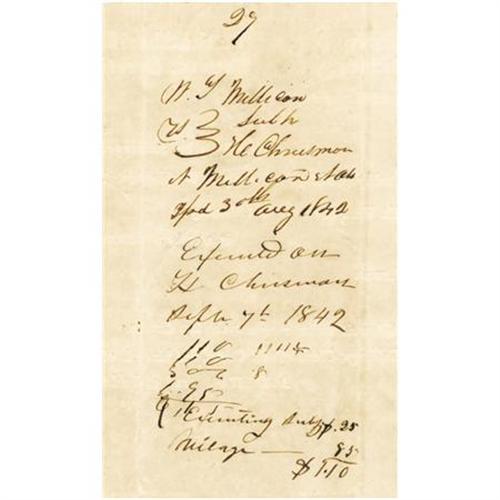 27
W. Y Millican
vs } Subh
H Chrisman
A Millican et als
Ipod 30th Aug 1842
Executed on
H Chrisman
Sepbr 7th 1842
110
8
.95
Executing Subp $.25
Milage — 85
$1.10